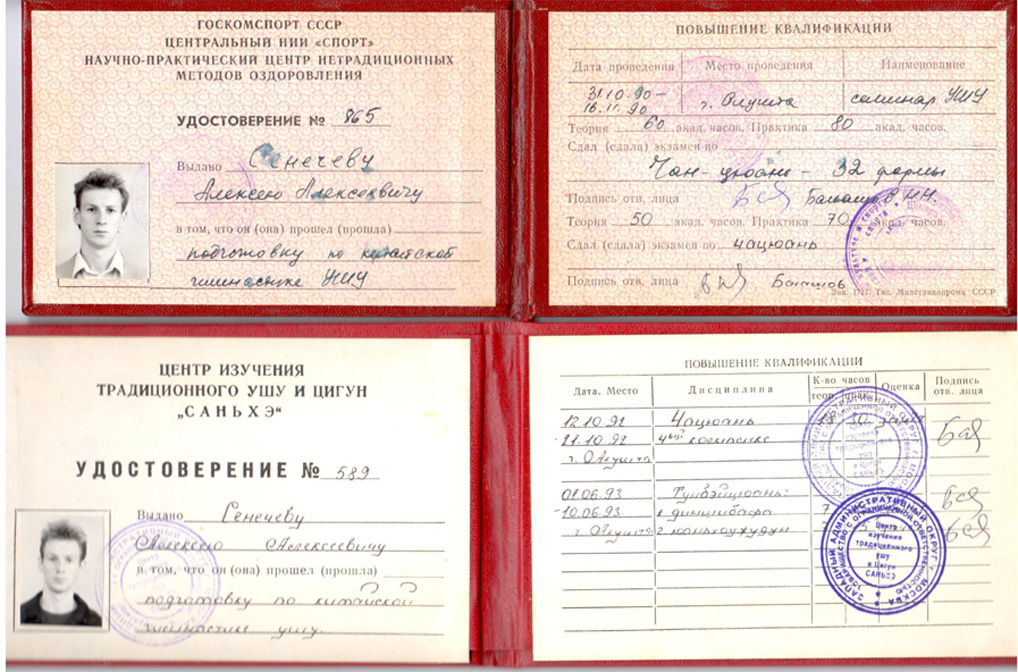 ГОСКОМСПОРТ СССР
ЦЕНТРАЛЬНЫЙ НИИ «СПОРТ»
НАУЧНО-ПРАКТИЧЕСКИЙ ЦЕНТР НЕТРАДИЦИОННЫХ
МЕТОДОВ ОЗДОРОВЛЕНИЯ
УДОСТОВЕРЕНИЕ № 865
Выдано Сенечеву
Алексею Алексеевичу
в том, что он (она) прошел (прошла)
подготовку по китайской
гимнастике УШУ
ПОВЫШЕНИЕ КВАЛИФИКАЦИИ
Дата проведения Место проведения Наименование
31.10.90– г. Алушта семинар УШУ
16.11.90
Теория 60 акад. часов. Практика 80 акад. часов.
Сдал (сдала) экзамен по
Чан-цюань - 32 формы
Подпись отв. лица
Теория 50 акад. часов. Практика 70 акад. часов.
Сдал (сдала) экзамен по чацюань
Подпись отв. лица Балашов
Тип. Минстанкопрома СССР
ЦЕНТР ИЗУЧЕНИЯ
ТРАДИЦИОННОГО УШУ И ЦИГУН
„САНЬХЭ“
УДОСТОВЕРЕНИЕ № 589
Выдано Сенечеву
Алексею Алексеевичу
в том, что он (она) прошел (прошла)
подготовку по китайской
гимнастике ушу.
ПОВЫШЕНИЕ КВАЛИФИКАЦИИ
Дата. Место Дисциплина К-во часов Оценка Подпись
теор. прак. отв. лица
12.10.92 Чацюань
-21.10.92 комплекс
г. Алушта
01.06.93
-10.06.93
г. Алушта
ЗАПАДНЫЙ АДМИНИСТРАТИВНЫЙ ОКРУГ Г. МОСКВА
ТОВАРИЩЕСТВО С ОГРАНИЧЕННОЙ ОТВЕТСТВЕННОСТЬЮ
Центр
изучения
традиционного
ушу
и Цигун
САНЬХЭ